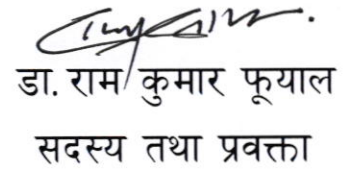 डा. राम कुमार फूयाल
सदस्य तथा प्रवक्ता